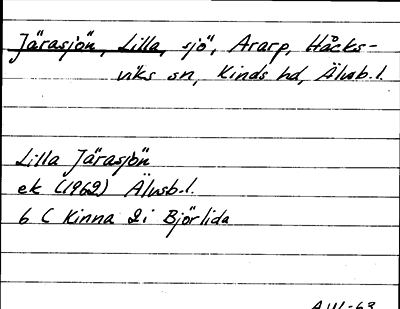 Järasjön, Lilla, sjö, Ararp, Håcks-
viks sn, Kinds hd, Älvsb.l.
Lilla Järasjön
ek (1962) Älvsb.l.
6 C Kinna 2i Björlida